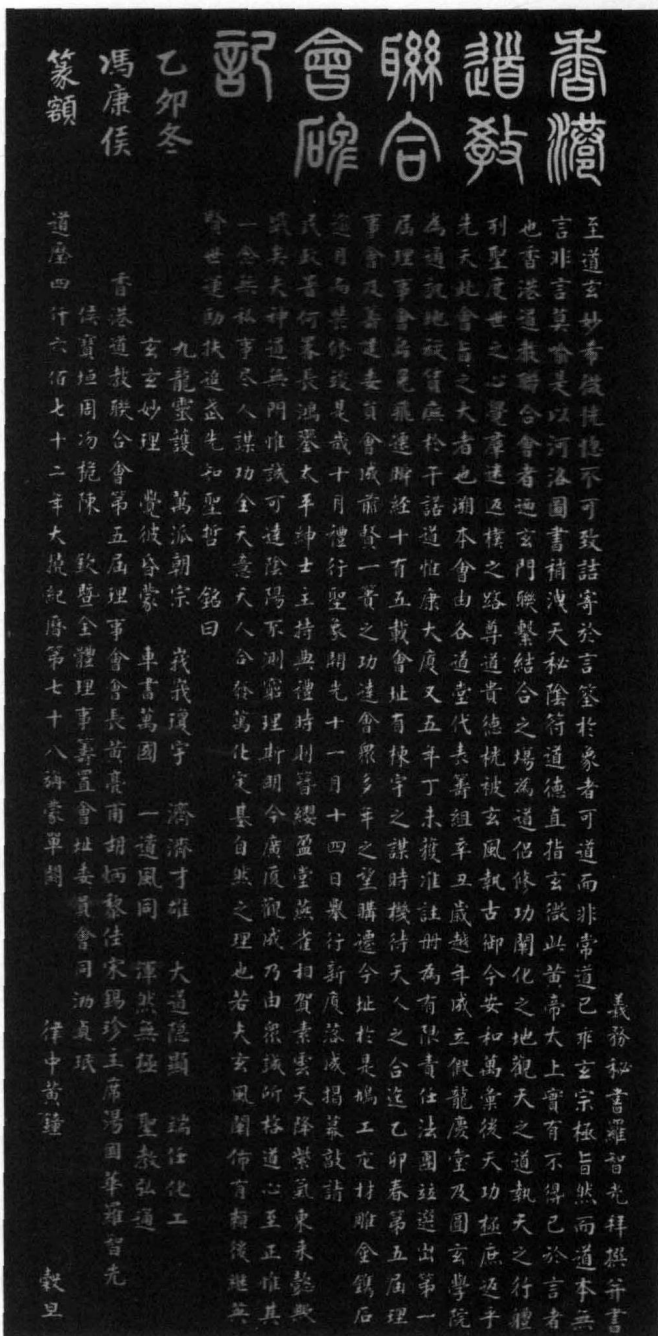 香港
道教
聯合
會碑
記
乙卯冬
馮康侯
篆額
義務秘書羅智光拜撰并書
至道玄妙希微恍惚不可致詰寄於言筌於象者可道而非常道已乖玄宗極旨然而道本無
言非言莫喻是以河洛圖書稍洩天秘陰符道德直指玄微此黃帝太上實有不得已於言者
也香港道教聯合會者迺玄門聯繫結合之場為道侶修功闡化之地觀天之道執天之行體
列聖度世之心覺羣迷返樸之路尊道貴德桄被玄風執古御今安和萬彙後天功極庶返乎
先天此會旨之大者也溯本會由各道堂代表籌組辛丑歲越年成立假龍慶堂及圓玄學院
為通訊地祇賃廡於干諾道惟康大廈又五年丁未獲准註册為有限責任法團玆選出第一
屆理事會烏兔飛速瞬經十有五載會址有棟宇之謀時機待天人之合迄乙卯春第五屆理
事會及籌建委員會咸前賢一簣之功達會眾多年之望購遷今址於是鳩工庀材雕金鐫石
逾月而葉修竣是歲十月禮行聖象開光十一月十四日舉行新廈落成揭幕敦請
民政署何署長鴻鑾太平紳士主持典禮時則簪纓盈堂燕雀相賀素雲天降紫氣東来懿歟
夫神道無門惟誠可達陰陽不測窮理斯明今廣廈觀成乃由眾誠所格道心至正惟其
一念無私事尽人謀功全天意天人合發萬化定基自然之理也若夫玄風闡佈有賴後继英
賢世運勘扶追茲先知聖哲 銘曰
九龍靈護 萬派朝宗 峩峩瓊宇 濟濟才雄 大道隱顯 端任化工
玄玄妙理 覺彼昏蒙 車書萬國 一道風同 渾然無極 聖教弘通
香港道教聯合會第五屆理事會會長黃亮甫胡炳黎佳宋錫珍主席湯國華羅智光
侯寶垣周冯挹陳 欽暨全體理事籌置會址委員會同泐貞珉
道歷四仟六佰七十二年大撓紀曆第七十八旃蒙單閼 律中黃鐘 穀旦